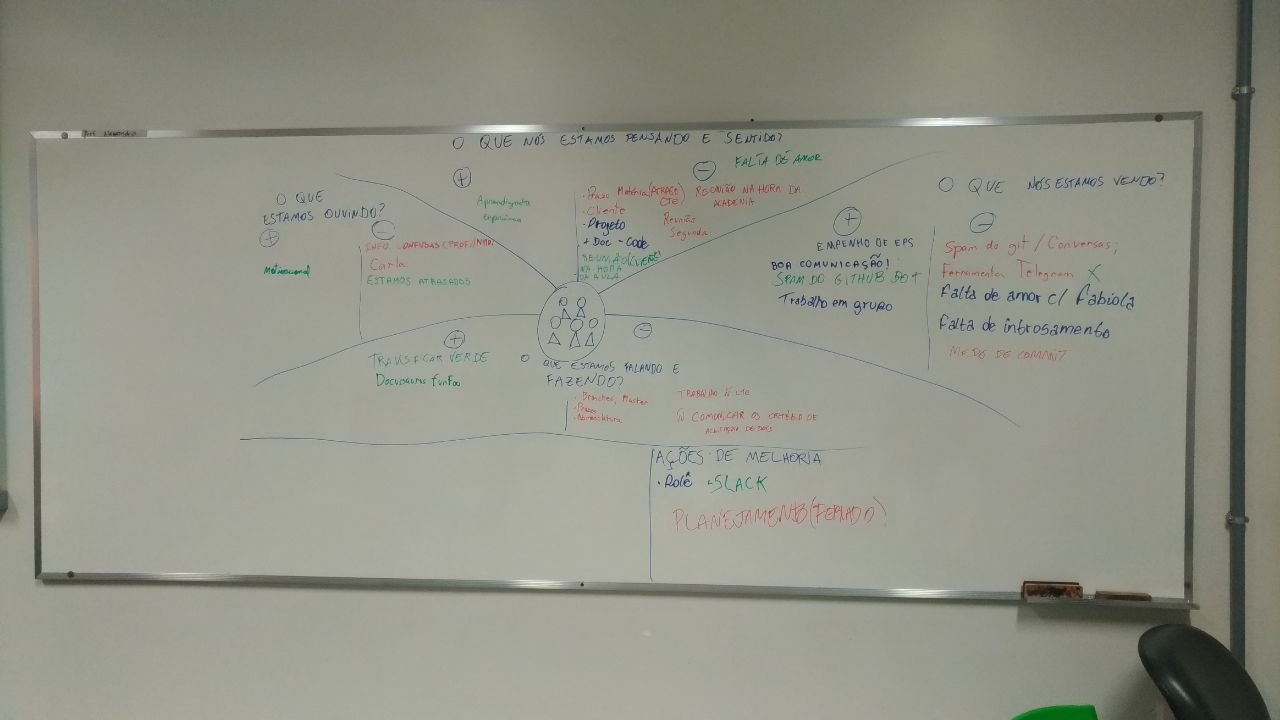 O QUE NÓS ESTAMOS PENSANDO E SENTIDO?
+
Aprendizado
-
FALTA DE AMOR
• Prazo Matéria (ATRASO)
CTE)
• Cliente
• Projeto
+ Doc - Code
REUNIÃO
NA HORA
DA AULA
REUNIÃO NA HORA DA
ACADEMIA
Reunião
Segunda
O QUE
ESTAMOS OUVINDO?
+
Motivacional
-
INFO. CONFUSAS (PROF./
Carla
ESTAMOS ATRASADOS
O QUE NÓS ESTAMOS VENDO?
+
EMPENHO DE EPS
BOA COMUNICAÇÃO!
SPAM DO GITHUB BOT
Trabalho em grupo
-
Spam do git / Conversas;
Ferramenta Telegram X
Falta de amor c/ Fabiola
Falta de introsamento
MEDO DE COMMIT
O QUE ESTAMOS FALANDO E
FAZENDO?
+
TRAVIS FICAR VERDE
-
• Branches, Master
• Prazo
• Nomenclatura
TRABALHO Ñ
Ñ COMUNICAR OS CRITÉRIO DE
ACEITAÇÃO DE DOCS
AÇÕES DE MELHORIA
• Rolê • SLACK
PLANEJAMENTO (FERIADO)